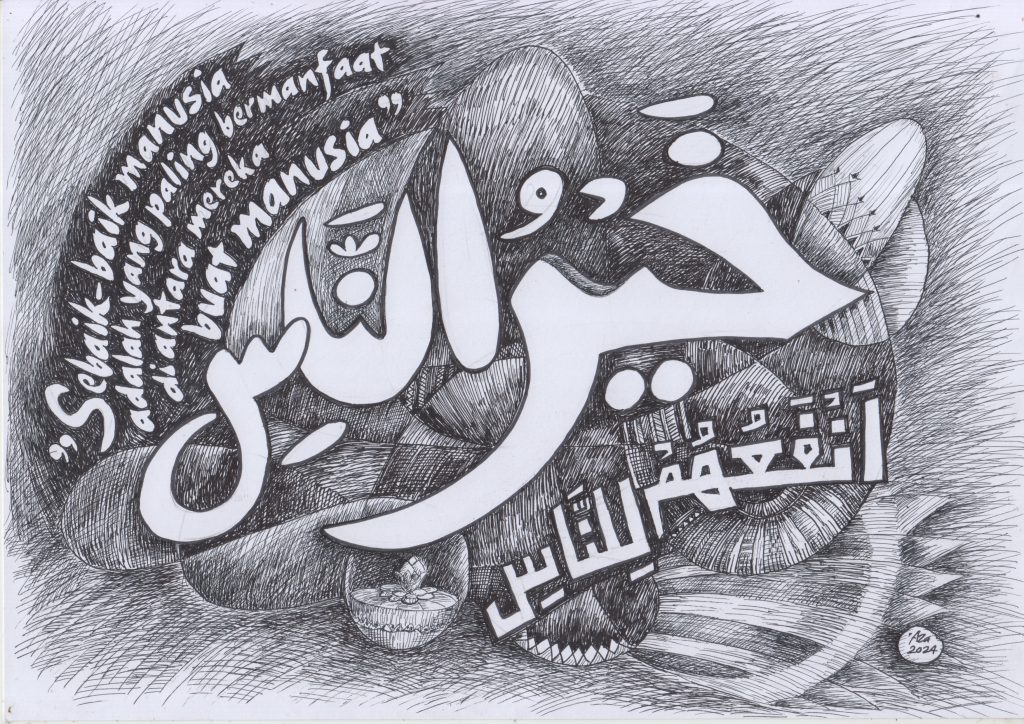 "Sebaik-baik manusia
adalah yang paling bermanfaat
diantara mereka
buat manusia"
خَيْرُ النَّاسِ
اَنْفَعُهُمْ لِلنَّاسِ
'Aza
2024